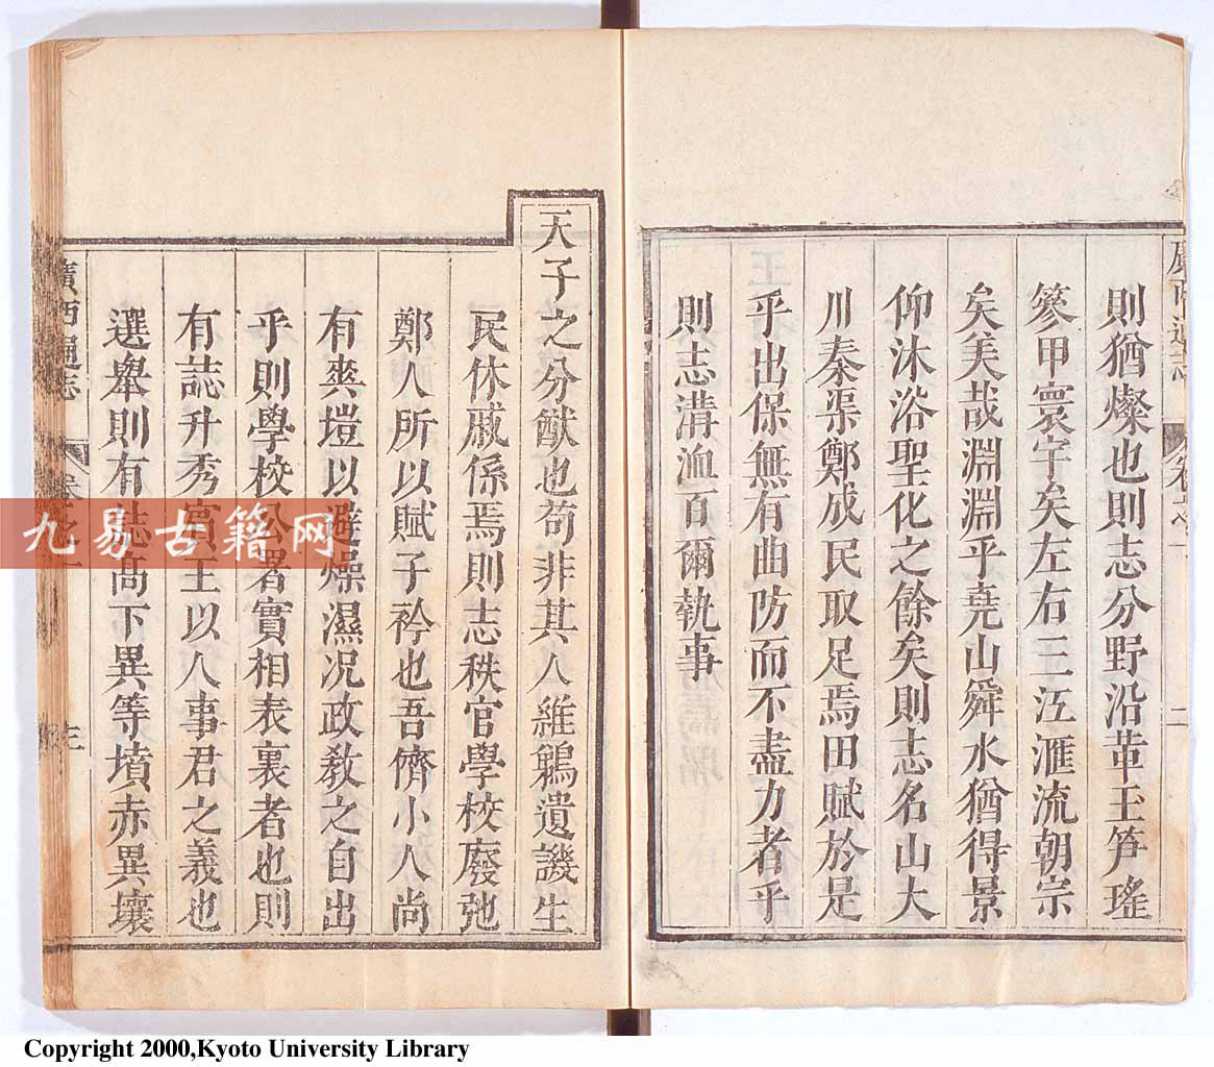 則猶燦也則志分野沿革玉笋瑤
篸甲寰宇矣左右三江滙流朝宗
矣美哉淵淵乎堯山舜水猶得景
仰沐浴聖化之餘矣則志名山大
川秦渠鄭成民取足焉田賦於是
乎出保無有曲防而不盡力者乎
則志溝洫百爾執事
天子之分猷也苟非其人維鵜遺譏生
民休戚係焉則志秩官學校廢弛
鄭人所以賦子衿也吾儕小人尚
有爽塏以避燥濕况政敎之自出
乎則學校公署實相表裏者也則
有誌升秀賓王以人事君之義也
選舉則有誌高下異等墳赤異壤
廣西通志
九易古籍网
Copyright 2000,Kyoto University Library